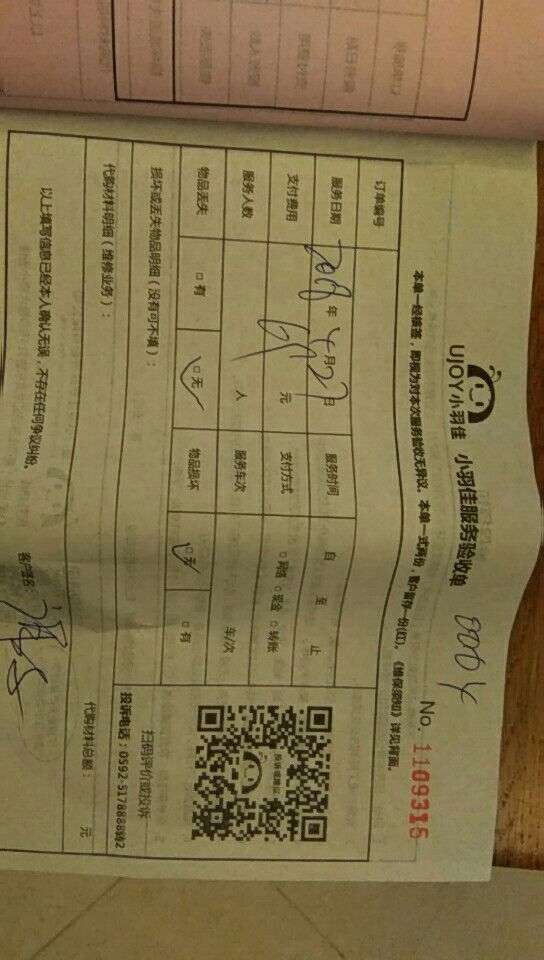 UJOY小羽佳 小羽佳服务验收单 0004
No. 1109316
本单一经核签，即视为对本次服务验收无异议。本单一式两份，客户留存一份(红)。《维保须知》详见背面。
订单编号
服务日期 2018年4月27日 服务时间 自 至 止
支付费用 元 支付方式 □网络 □现金 □转账
服务人数 人 服务车次 车/次
物品丢失 □有 □无 物品损坏 □无 □有
损坏或丢失物品明细（没有可不填）：
代购材料明细（维修业务）：
代购材料总额： 元
以上填写信息已经本人确认无误，不存在任何争议纠纷。
客户签名
投诉或建议
扫码评价或投诉
投诉电话：0592-5178888转2